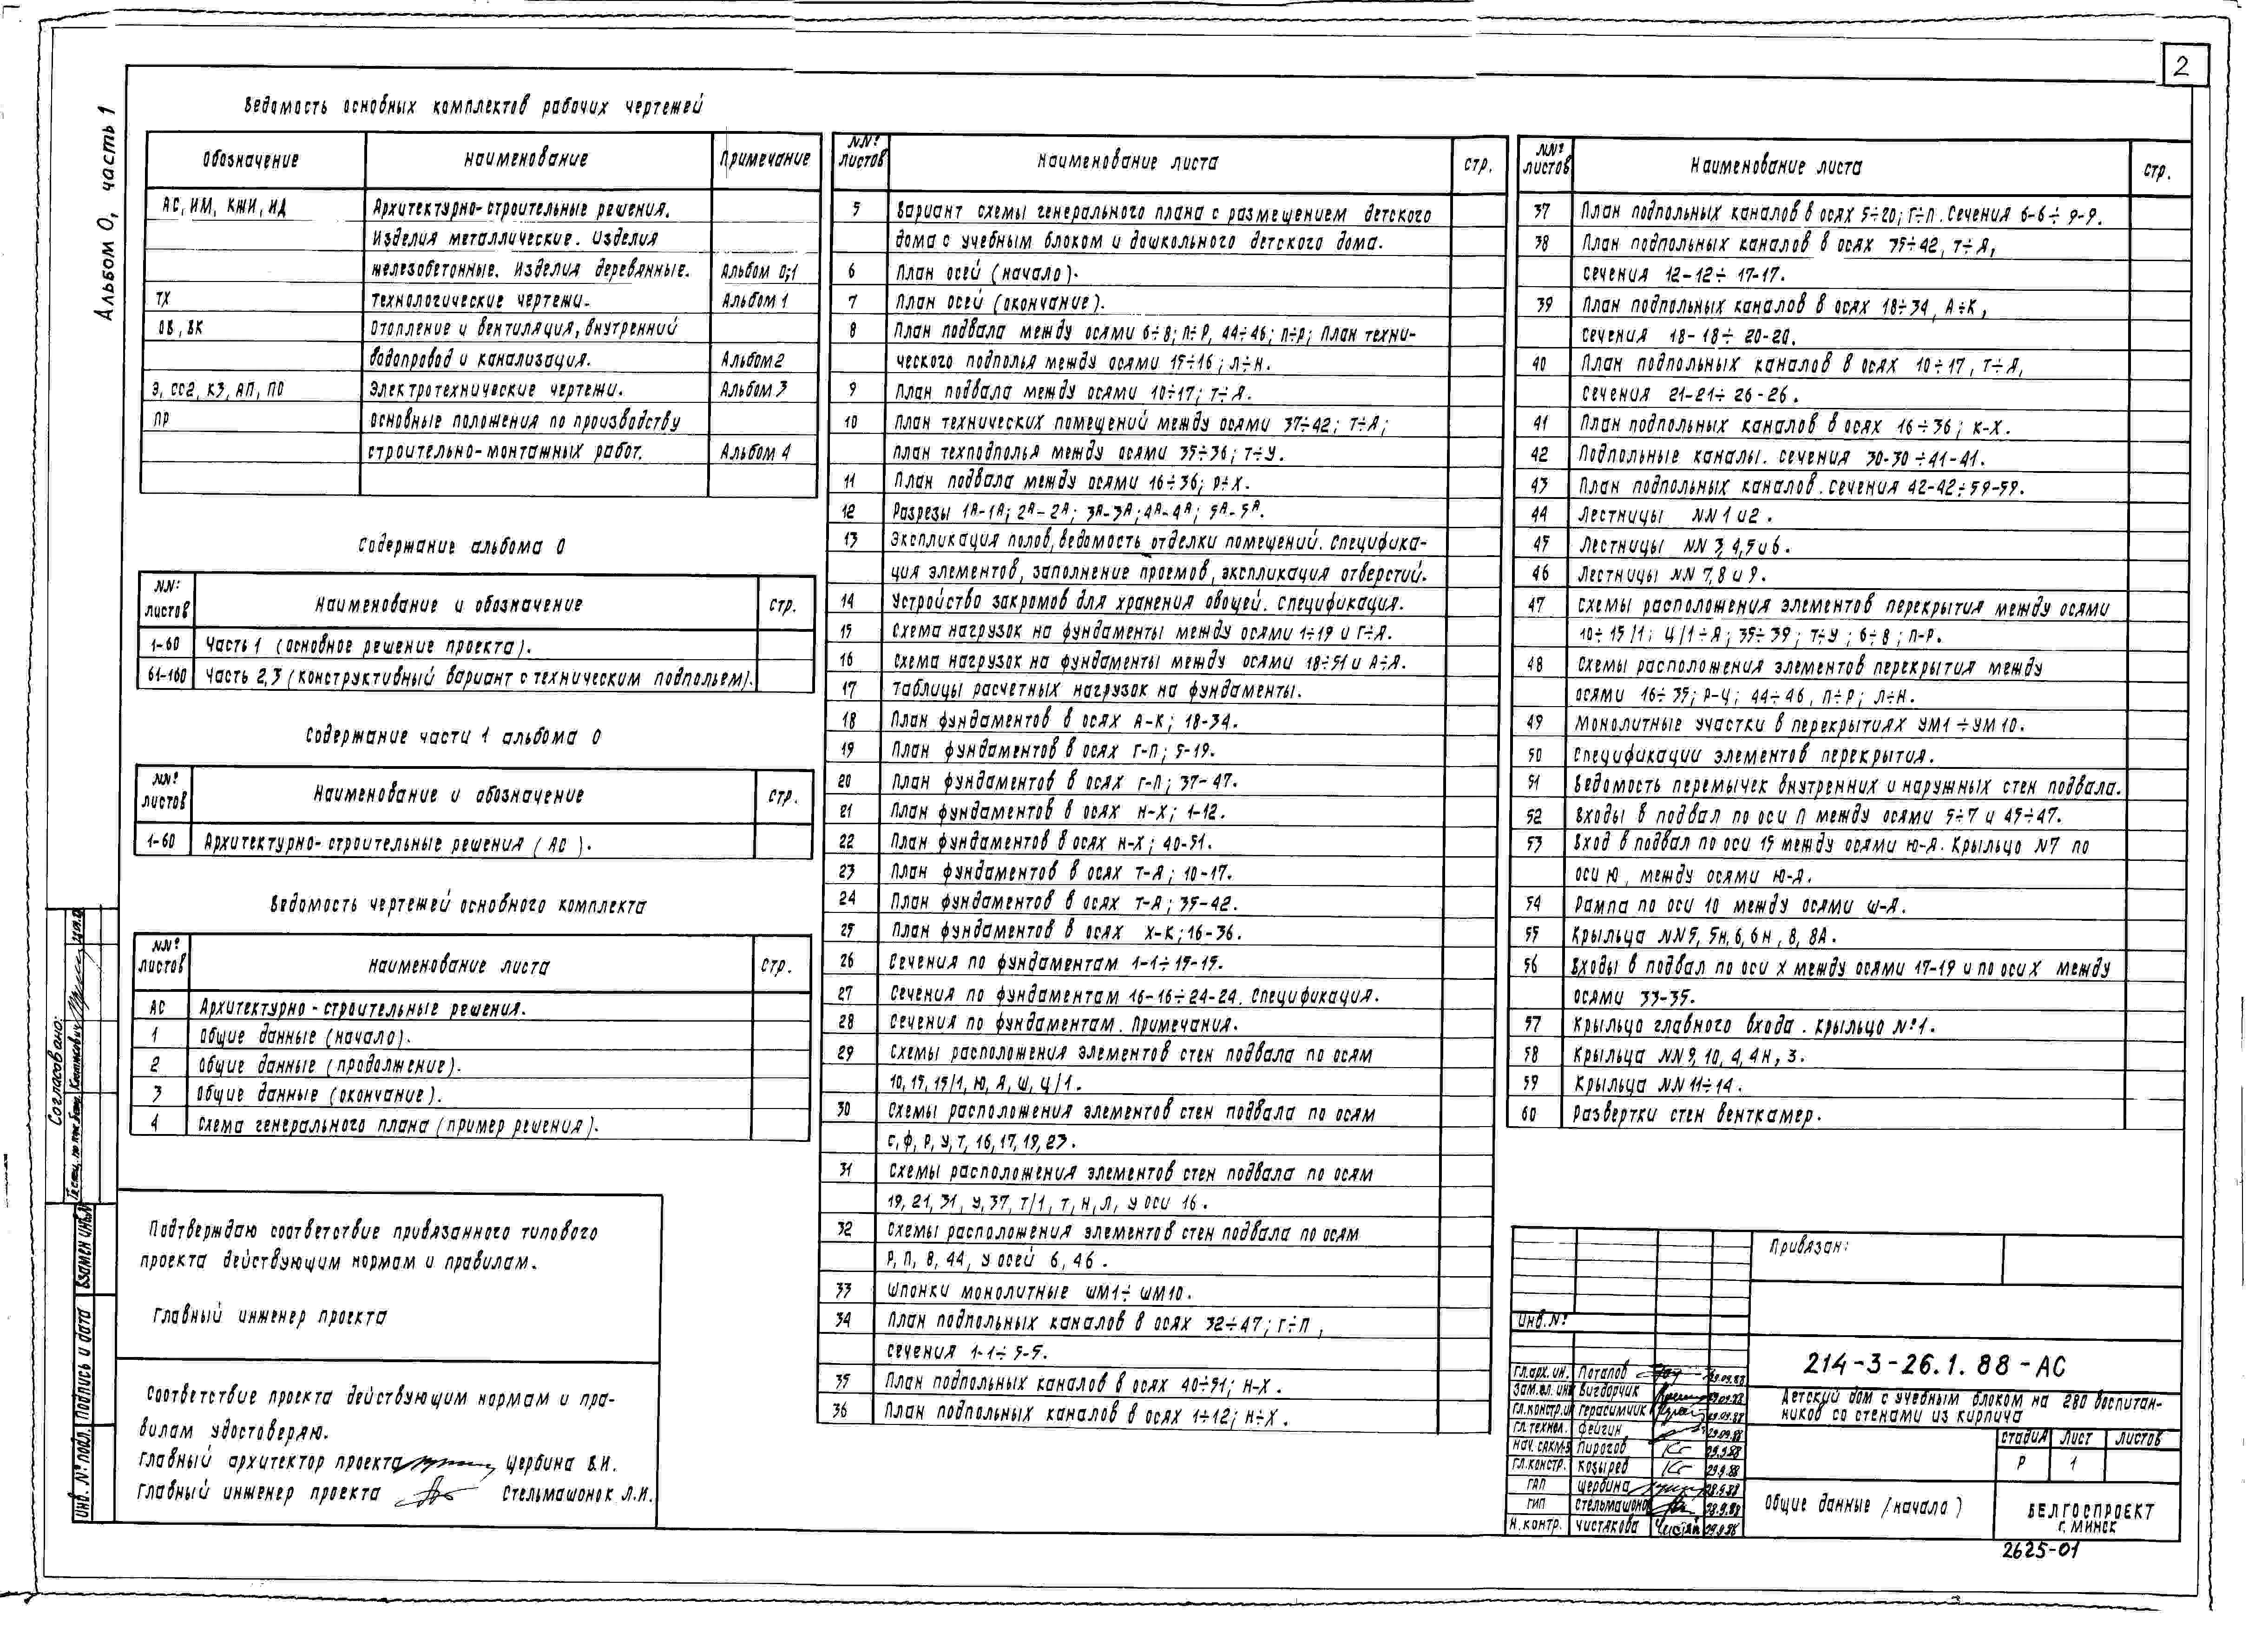 2
Альбом 0, часть 1
Ведомость основных комплектов рабочих чертежей
Обозначение Наименование Примечание
АС, ИМ, КЖИ, ИД Архитектурно-строительные решения.
Изделия металлические. Изделия
железобетонные. Изделия деревянные. Альбом 0;1
ТХ Технологические чертежи. Альбом 1
ОВ, ВК Отопление и вентиляция, внутренний
водопровод и канализация. Альбом 2
Э, СС2, КЗ, АП, ПО Электротехнические чертежи. Альбом 3
ПР Основные положения по производству
строительно-монтажных работ. Альбом 4
Содержание альбома 0
NN: листов Наименование и обозначение стр.
1-60 Часть 1 (основное решение проекта).
61-160 Часть 2,3 (конструктивный вариант с техническим подпольем).
Содержание части 1 альбома 0
NN: листов Наименование и обозначение стр.
1-60 Архитектурно-строительные решения (АС).
Ведомость чертежей основного комплекта
NN: листов Наименование листа стр.
АС Архитектурно-строительные решения.
1 Общие данные (начало).
2 Общие данные (продолжение).
3 Общие данные (окончание).
4 Схема генерального плана (пример решения).
Подтверждаю соответствие привязанного типового
проекта действующим нормам и правилам.
Главный инженер проекта
Соответствие проекта действующим нормам и пра-
вилам удостоверяю.
Главный архитектор проекта Щербина В.И.
Главный инженер проекта Стельмашонок Л.И.
NN: листов Наименование листа стр.
5 Вариант схемы генерального плана с размещением детского
дома с учебным блоком и дошкольного детского дома.
6 План осей (начало).
7 План осей (окончание).
8 План подвала между осями 6÷8; П÷Р, 44÷46; П÷Р; План техни-
ческого подполья между осями 15÷16; Л÷Н.
9 План подвала между осями 10÷17; Т÷Я.
10 План технических помещений между осями 37÷42; Т÷Я;
план техподполья между осями 35÷36; Т÷У.
11 План подвала между осями 16÷36; Р÷Х.
12 Разрезы 1А-1А; 2А-2А; 3А-3А; 4А-4А; 5А-5А.
13 Экспликация полов, ведомость отделки помещений. Специфика-
ция элементов, заполнение проемов, экспликация отверстий.
14 Устройство закромов для хранения овощей. Спецификация.
15 Схема нагрузок на фундаменты между осями 1÷19 и Г÷Я.
16 Схема нагрузок на фундаменты между осями 18÷51 и А÷Я.
17 Таблицы расчетных нагрузок на фундаменты.
18 План фундаментов в осях А-К; 18-34.
19 План фундаментов в осях Г-П; 5-19.
20 План фундаментов в осях Г-П; 37-47.
21 План фундаментов в осях Н-Х; 1-12.
22 План фундаментов в осях Н-Х; 40-51.
23 План фундаментов в осях Т-Я; 10-17.
24 План фундаментов в осях Т-Я; 35-42.
25 План фундаментов в осях Х-К; 16-36.
26 Сечения по фундаментам 1-1÷15-15.
27 Сечения по фундаментам 16-16÷24-24. Спецификация.
28 Сечения по фундаментам. Примечания.
29 Схемы расположения элементов стен подвала по осям
10, 15, 15/1, Ю, Я, Ш, Ц/1.
30 Схемы расположения элементов стен подвала по осям
С, Ф, Р, У, Т, 16, 17, 19, 23.
31 Схемы расположения элементов стен подвала по осям
19, 21, 31, У, 37, Т/1, Т, Н, Л, у оси 16.
32 Схемы расположения элементов стен подвала по осям
Р, П, 8, 44, у осей 6, 46.
33 Шпонки монолитные ШМ1÷ШМ10.
34 План подпольных каналов в осях 32÷47; Г÷П,
сечения 1-1÷5-5.
35 План подпольных каналов в осях 40÷51; Н-Х.
36 План подпольных каналов в осях 1÷12; Н÷Х.
NN: листов Наименование листа стр.
37 План подпольных каналов в осях 5÷20; Г÷П. Сечения 6-6÷9-9.
38 План подпольных каналов в осях 35÷42, Т÷Я,
сечения 12-12÷17-17.
39 План подпольных каналов в осях 18÷34, А÷К,
сечения 18-18÷20-20.
40 План подпольных каналов в осях 10÷17, Т÷Я,
сечения 21-21÷26-26.
41 План подпольных каналов в осях 16÷36; К-Х.
42 Подпольные каналы. Сечения 30-30÷41-41.
43 План подпольных каналов. Сечения 42-42÷59-59.
44 Лестницы NN 1 и 2.
45 Лестницы NN 3, 4, 5 и 6.
46 Лестницы NN 7, 8 и 9.
47 Схемы расположения элементов перекрытия между осями
10÷15/1; Ц/1÷Я; 35÷39; Т÷У; 6÷8; П-Р.
48 Схемы расположения элементов перекрытия между
осями 16÷35; Р-Ц; 44÷46, П÷Р; Л÷Н.
49 Монолитные участки в перекрытиях УМ1÷УМ10.
50 Спецификации элементов перекрытия.
51 Ведомость перемычек внутренних и наружных стен подвала.
52 Входы в подвал по оси П между осями 5÷7 и 45÷47.
53 Вход в подвал по оси 15 между осями Ю-Я. Крыльцо N7 по
оси Ю, между осями Ю-Я.
54 Рампа по оси 10 между осями Ш-Я.
55 Крыльца NN5, 5Н, 6, 6Н, 8, 8А.
56 Входы в подвал по оси Х между осями 17-19 и по оси Х между
осями 33-35.
57 Крыльцо главного входа. Крыльцо №1.
58 Крыльца NN 9, 10, 4, 4Н, 3.
59 Крыльца NN 11÷14.
60 Развертки стен венткамер.
Привязан:
Инв. №:
214-3-26.1.88-АС
Детский дом с учебным блоком на 280 воспитан-
ников со стенами из кирпича
Стадия Лист Листов
Р 1
Общие данные (начало)
БЕЛГОСПРОЕКТ
г. МИНСК
2625-01
Гл.арх.ин. Потапов 29.09.88
Зам.гл.инж Вигдорчик 29.09.88
Гл.констр.ин Герасимчик 29.09.88
Гл.технол. Фейгин 29.09.88
Нач. САКМ-5 Пирогов 29.9.88
Гл.констр. Козырев 29.9.88
ГАП Щербина 28.9.88
ГИП Стельмашонок 28.9.88
Н.контр. Чистякова 29.9.88
Согласовано:
Взамен инв.№
Подпись и дата
Инв. № подл.